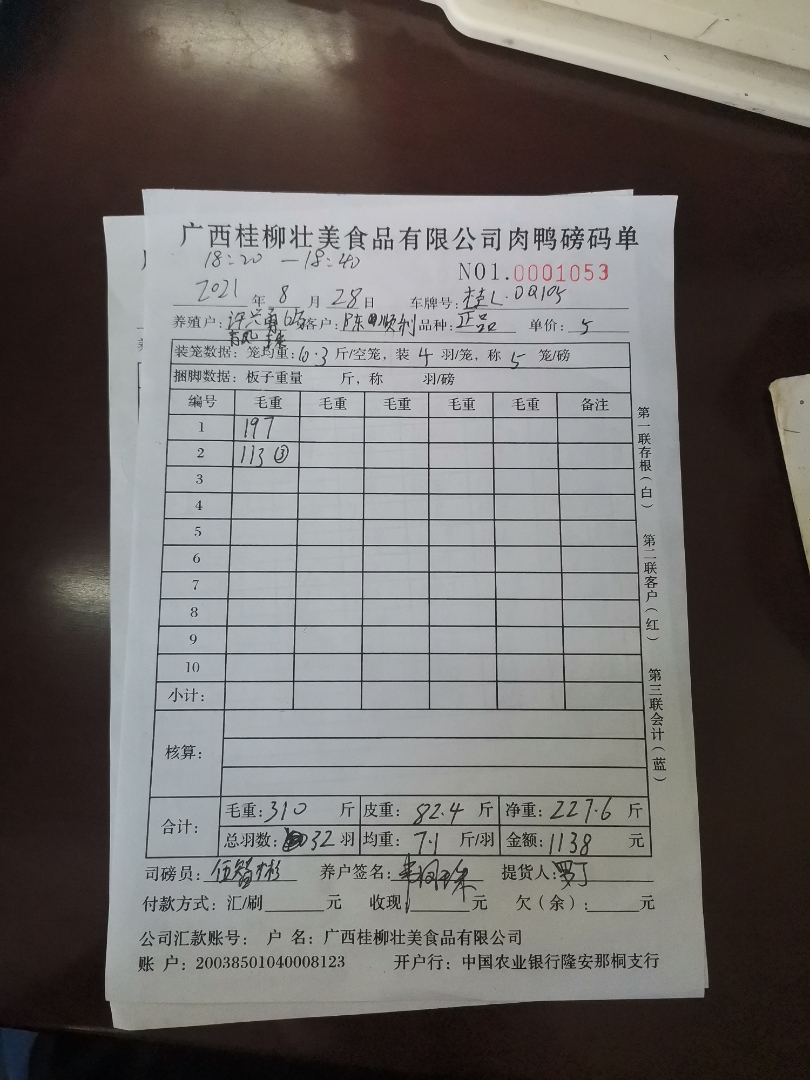 广西桂柳壮美食品有限公司肉鸭磅码单
18:20 —18:40
NO1.0001053
2021年8月28日 车牌号:桂L.
养殖户:许兴勇 客户:陈 顺利 品种:正品 单价:5
装笼数据:笼均重:10.3斤/空笼,装4羽/笼,称5笼/磅
捆脚数据:板子重量 斤,称 羽/磅
编号 毛重 毛重 毛重 毛重 毛重 备注
1 197
2 113③
3
4
5
6
7
8
9
10
小计:
核算:
合计: 毛重:310斤 皮重:82.4斤 净重:227.6斤
总羽数:32羽 均重:7.1斤/羽 金额:1138元
司磅员:伍智彬 养户签名: 提货人:
付款方式:汇/刷 元 收现 元 欠(余): 元
公司汇款账号: 户 名:广西桂柳壮美食品有限公司
账 户:20038501040008123 开户行:中国农业银行隆安那桐支行
第一联存根(白)
第二联客户(红)
第三联会计(蓝)